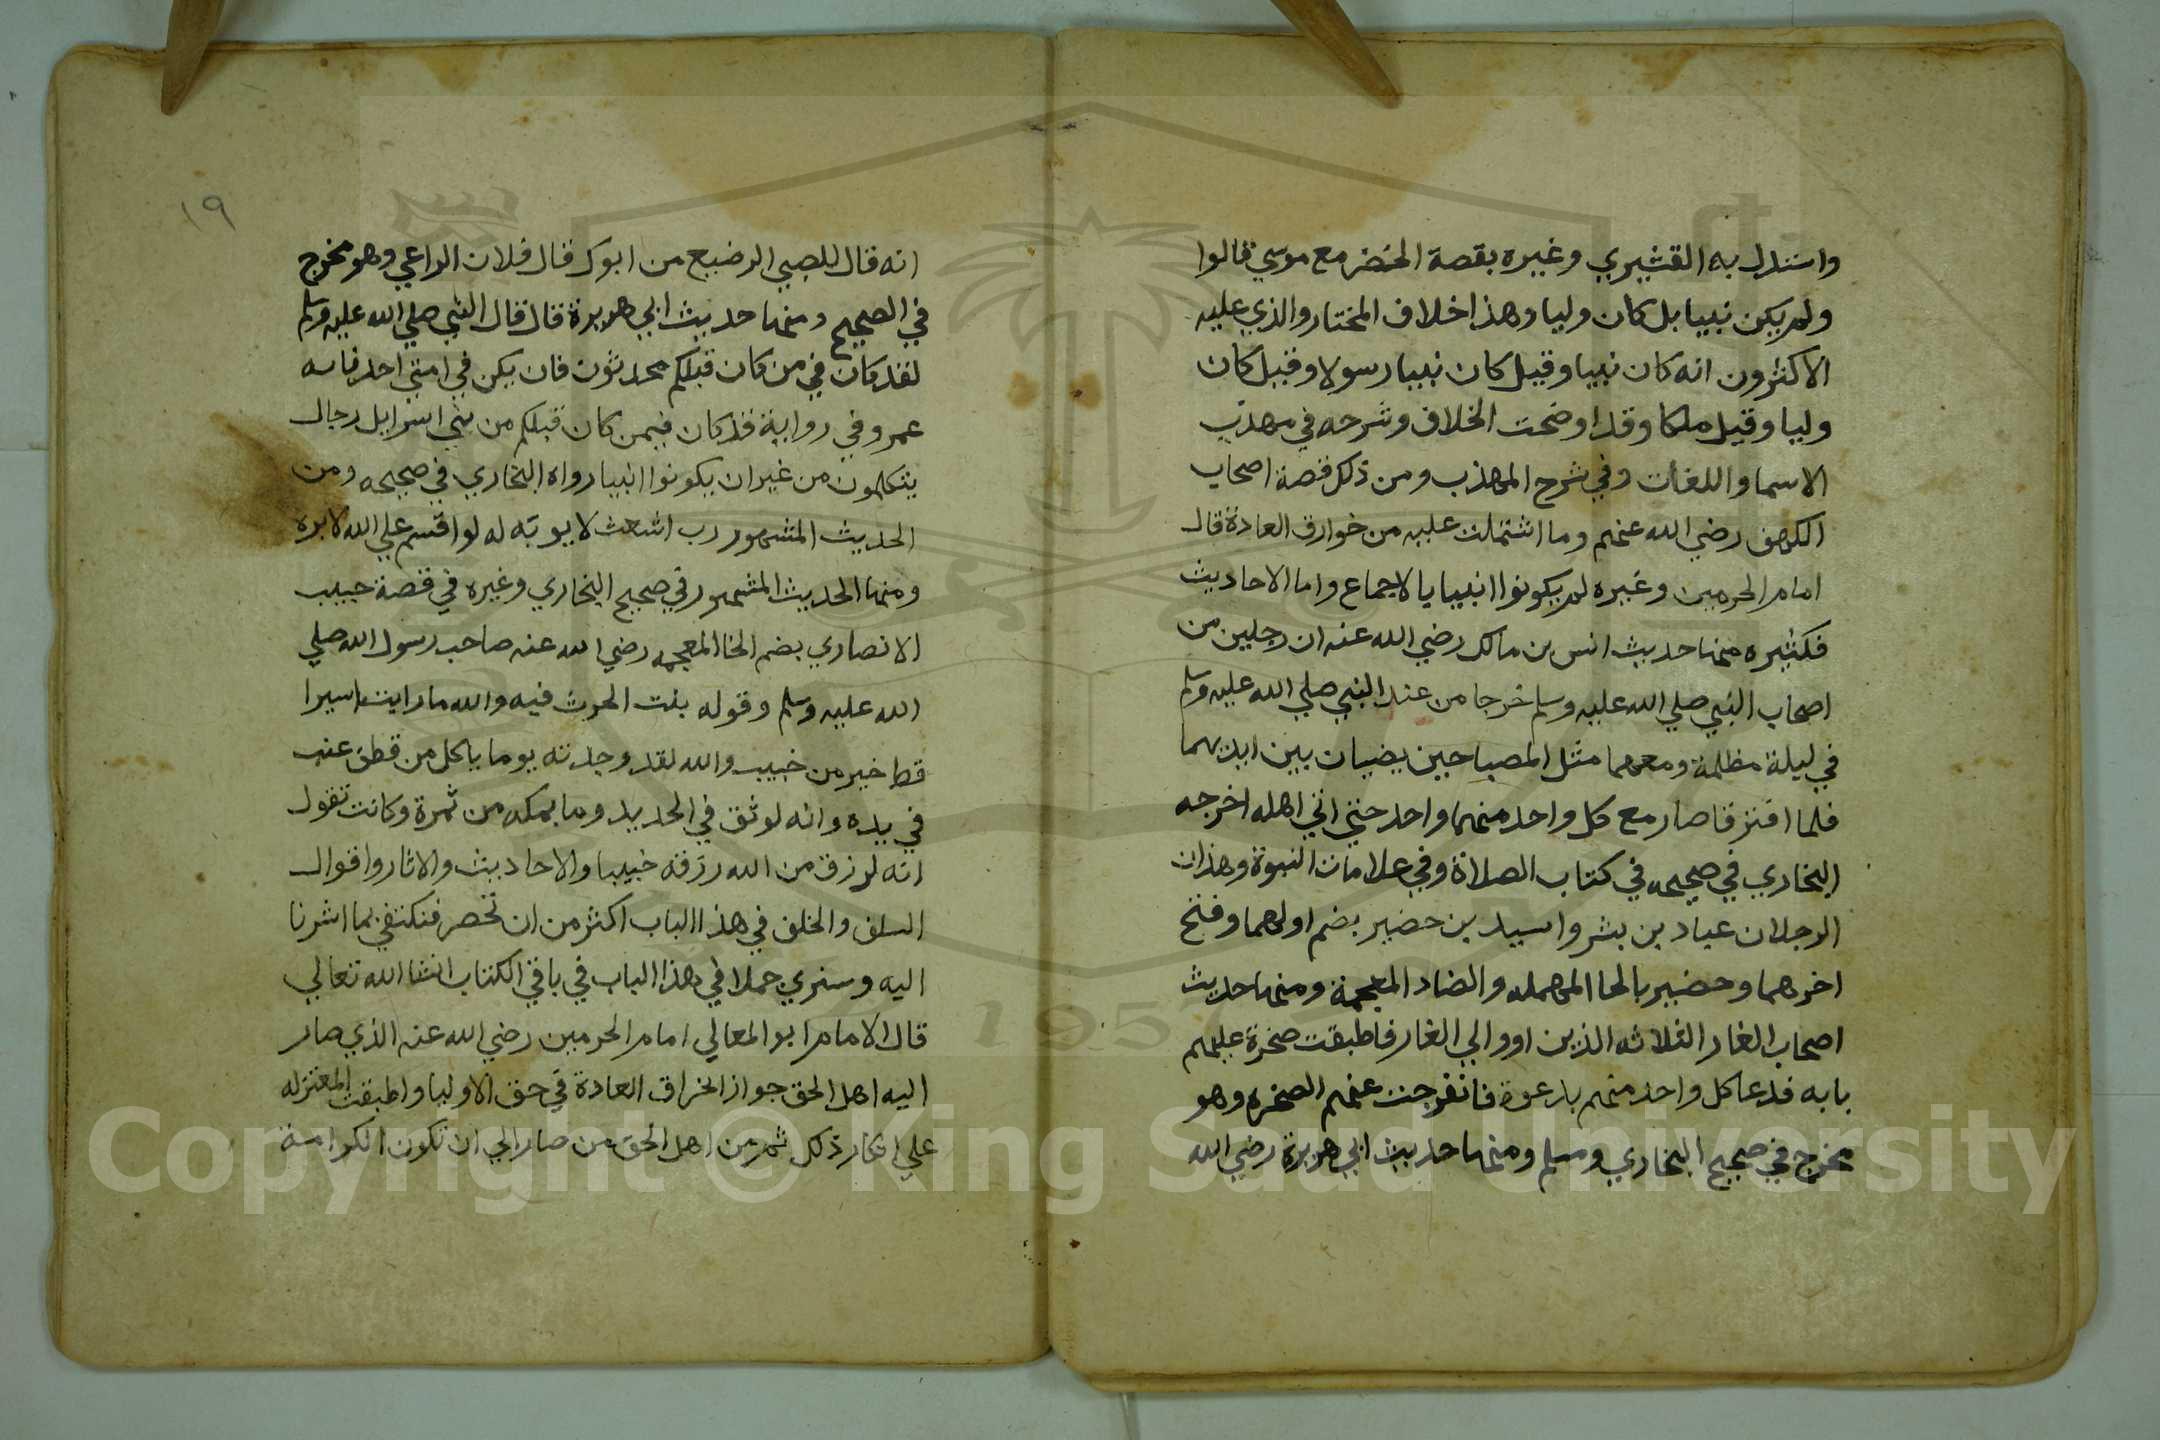 واستدل به القشيري وغيره بقصة الخضر مع موسي قالوا
ولم يكن نبيا بل كان وليا وهذا خلاف المختار والذي عليه
الاكثرون انه كان نبيا وقيل كان نبيا رسولا وقيل كان
وليا وقيل ملكا وقد اوضحت الخلاف وشرحه في مهذب
الاسما واللغات وفي شرح المهذب ومن ذلك قصة اصحاب
الكهف رضي الله عنهم وما اشتملت عليه من خوارق العادة قال
امام الحرمين وغيره لم يكونوا انبيا بالاجماع واما الاحاديث
فكثيره منها حديث انس بن مالك رضي الله عنه ان رجلين من
اصحاب النبي صلي الله عليه وسلم خرجا من عند النبي صلي الله عليه وسلم
في ليلة مظلمة ومعهما مثل المصباحين يضيان بين ايديهما
فلما افترقا صار مع كل واحد منهما واحد حتي اتي اهله اخرجه
البخاري في صحيحه في كتاب الصلاة وفي علامات النبوة وهذان
الرجلان عباد بن بشر واسيد بن حضير بضم اولهما وفتح
اخرهما وحضير بالحا المهمله والضاد المعجمة ومنها حديث
اصحاب الغار الثلاثه الذين اووا الي الغار فاطبقت صخرة عليهم
بابه فدعا كل واحد منهم بدعوة فانفرجت عنهم الصخره وهو
مخرج في صحيح البخاري ومسلم ومنها حديث ابي هريرة رضي الله
١٩
انه قال للصبي الرضيع من ابوك قال فلان الراعي وهو مخرج
في الصحيح ومنها حديث ابي هريرة قال قال النبي صلي الله عليه وسلم
لقد كان في من كان قبلكم محدثون فان يكن في امتي احد فانه
عمر وفي رواية قد كان فيمن كان قبلكم من بني اسرايل رجال
يتكلمون من غير ان يكونوا انبيا رواه البخاري في صحيحه ومن
الحديث المشهور رب اشعث لا يوبه له لو اقسم علي الله لابره
ومنها الحديث المشهور في صحيح البخاري وغيره في قصة خبيب
الانصاري بضم الخا المعجمه رضي الله عنه صاحب رسول الله صلي
الله عليه وسلم وقوله بنت الحرث فيه والله ما رايت اسيرا
قط خير من خبيب والله لقد وجدته يوما ياكل من قطف عنب
في يده وانه لوثق في الحديد وما بمكه من ثمرة وكانت تقول
انه لرزق من الله رزقه خبيبا والاحاديث والاثار واقوال
السلف والخلف في هذا الباب اكثر من ان تحصر فنكتفي بما اشرنا
اليه وستري جملا في هذا الباب في باقي الكتاب انشا الله تعالي
قال الامام ابو المعالي امام الحرمين رضي الله عنه الذي صار
اليه اهل الحق جواز انخراق العادة في حق الاوليا واطبقت المعتزله
علي انكار ذلك ثم من اهل الحق من صار الي ان تكون الكرامة
Copyright © King Saud University
1957